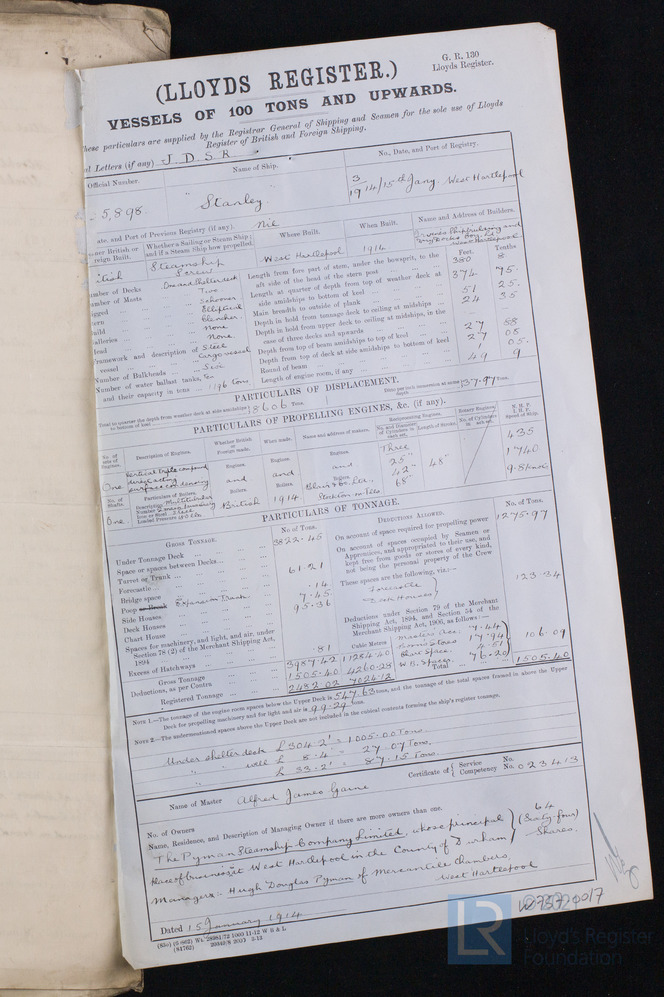 G. R. 130
Lloyds Register.
(LLOYDS REGISTER.)
VESSELS OF 100 TONS AND UPWARDS.
hese particulars are supplied by the Registrar General of Shipping and Seamen for the sole use of Lloyds
Register of British and Foreign Shipping.
al Letters (if any) J. D. S. R.
Official Number.
Name of Ship.
No., Date, and Port of Registry.
5,898
"Stanley"
3
1914/15th Jany. West Hartlepool
ate, and Port of Previous Registry (if any). Nil
Whether a Sailing or Steam Ship;
and if a Steam Ship how propelled.
Where Built.
When Built.
Name and Address of Builders.
Steamship
Screw
West Hartlepool
1914
West Hartlepool
Feet. Tenths
umber of Decks One and Shelter deck
umber of Masts Two
igged Schooner
ern Elliptical
uild Clencher
alleries None
ead None
ramework and description of Steel
vessel Cargo vessel
Number of Bulkheads Six
Number of water ballast tanks,
and their capacity in tons 1196 tons
Length from fore part of stem, under the bowsprit, to the
aft side of the head of the stern post 380 8
Length at quarter of depth from top of weather deck at
side amidships to bottom of keel 374 75
Main breadth to outside of plank 51 25
Depth in hold from tonnage deck to ceiling at midships 24 35
Depth in hold from upper deck to ceiling at midships, in the
case of three decks and upwards
Depth from top of beam amidships to top of keel 27 58
Depth from top of deck at side amidships to bottom of keel 27 08
Round of beam 1 05
Length of engine room, if any 49 9
PARTICULARS OF DISPLACEMENT.
Total to quarter the depth from weather deck at side amidships
to bottom of keel 8606 Tons.
Ditto per inch immersion at same
depth 37.97 Tons.
PARTICULARS OF PROPELLING ENGINES, &c. (if any).
No. of
sets of
Engines.
Description of Engines.
Whether British
or
Foreign made.
When made.
Name and address of makers.
Reciprocating Engines.
Rotary Engines.
N. H. P.
I. H. P.
Speed of Ship.
Length of Stroke.
One
Vertical triple compound
direct acting
surface condensing
Engines.
Engines.
Engines.
and
and
and
Boilers.
Boilers.
Boilers.
Three
25"
42"
68"
48"
435
1740
9.5 knots
No. of
Shafts.
One
Particulars of Boilers.
Description Multitubular
Iron or Steel Steel
Loaded Pressure
British
1914
Blair & Co. Ltd.,
Stockton on Tees
PARTICULARS OF TONNAGE.
GROSS TONNAGE.
No of Tons.
DEDUCTIONS ALLOWED.
No. of Tons.
Under Tonnage Deck 3822.45
Space or spaces between Decks
Turret or Trunk
Forecastle 61.21
Bridge space
Poop or Break .14
Side Houses Expansion Trunk 7.45
Deck Houses 95.36
Chart House
Spaces for machinery, and light, and air, under
Section 78 (2) of the Merchant Shipping Act,
1894
Excess of Hatchways .81
Cubic Metres
Gross Tonnage 3987.42 11284.40
Deductions, as per Contra 1505.40 4260.28
Registered Tonnage 2482.02 7024.12
On account of space required for propelling power 1275.97
On account of spaces occupied by Seamen or
Apprentices, and appropriated to their use, and
kept free from goods or stores of every kind,
not being the personal property of the Crew
These spaces are the following, viz.:— 123.34
Forecastle
Deck Houses
Deductions under Section 79 of the Merchant
Shipping Act, 1894, and Section 54 of the
Merchant Shipping Act, 1906, as follows:—
Masters Acc. 7.44
Bosns Stores 17.94
Chart Space 4.51
W.B. Spaces 76.20
106.09
Total 1505.40
NOTE 1.—The tonnage of the engine room spaces below the Upper Deck is 547.63 tons, and the tonnage of the total spaces framed in above the Upper
Deck for propelling machinery and for light and air is 99.29 tons.
NOTE 2.—The undermentioned spaces above the Upper Deck are not included in the cubical contents forming the ship's register tonnage.
Under shelter deck £ 304.2' = 1005.00 Tons
" well £ 8.4 = 27.07 Tons.
" " £ 33.2' = 87.15 Tons.
Name of Master Alfred James Gaine
Certificate of { Service No.
Competency No. 023413
No. of Owners
Name, Residence, and Description of Managing Owner if there are more owners than one.
The Pyman Steamship Company Limited, whose principal
place of business is at West Hartlepool in the County of Durham
64
(Sixty-four)
Shares.
Managers:- Hugh Douglas Pyman of Mercantile Chambers,
West Hartlepool
Dated 15 January 1914
Lloyd's Register
Foundation
LR